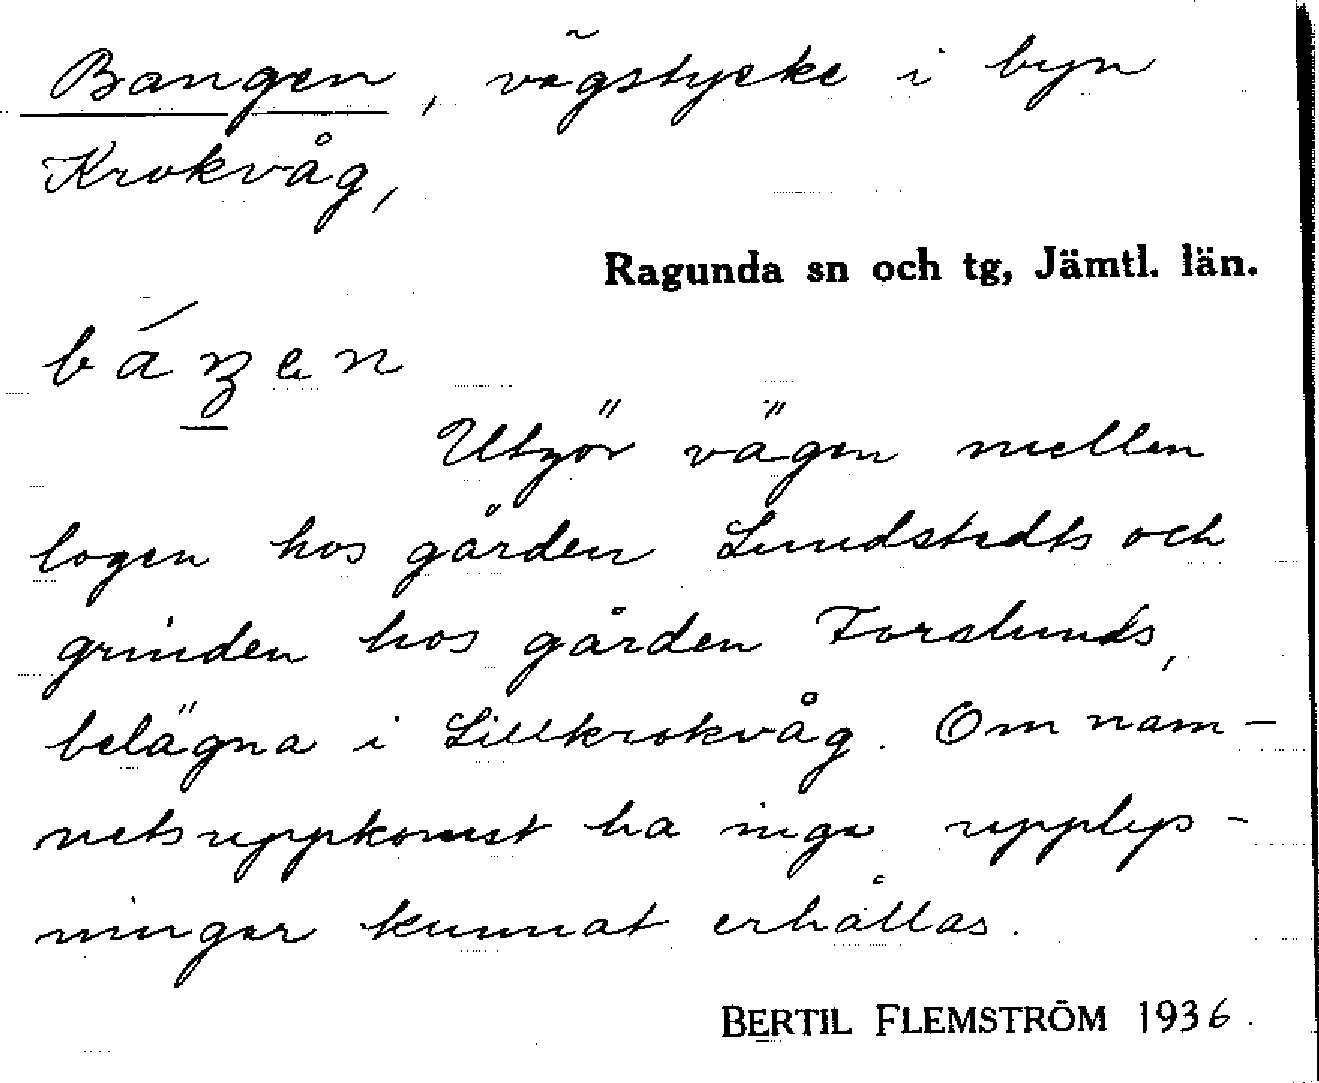 Bangen, vägstycke i byn
Krokvåg,
Ragunda sn och tg, Jämtl. län.
Utgör vägen mellan
logen hos gården Lundstedts och
grinden hos gården Forslunds,
belägna i Lillkrokvåg. Om nam-
nets uppkomst ha inga upplys-
ningar kunnat erhållas.
BERTIL FLEMSTRÖM 1936.